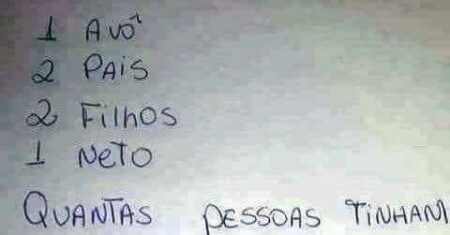 1 Avô
2 PAis
2 Filhos
1 NeTo
QUANTAS PESSOAS TiNHAM